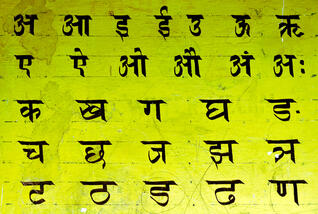 अ आ इ ई उ ऊ ऋ
ए ऐ ओ औ अं अः
क ख ग घ ङ
च छ ज झ ञ
ट ठ ड ढ ण